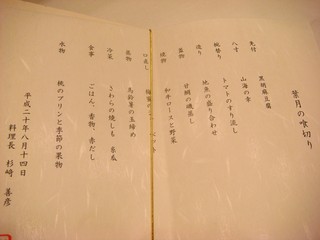 葉月の喰切り
先付 黒胡麻豆腐
八寸 山海の幸
椀替り トマトのすり流し
造り 地魚の盛り合わせ
蓋物 甘鯛の磯蒸し
焼物 和牛ロースと野菜
口直し
煮物 馬鈴薯の土締め
冷菜 さわらの焼しも 冬瓜
食事 ごはん、香物、赤だし
水物 桃のプリンと季節の果物
平成二十年八月十四日
料理長 杉崎 善彦